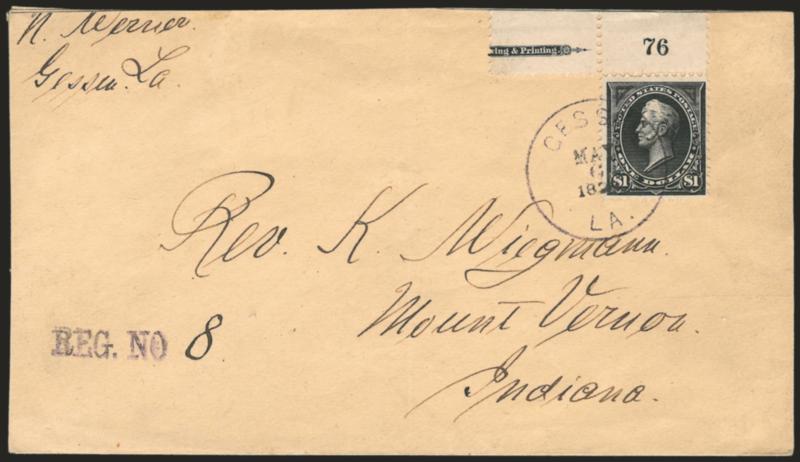 N. Werner.
Gessen. La.
ing & Printing.
76
UNITED STATES POSTAGE
ONE DOLLAR
$1 $1
MAY
LA.
Rev. K. Wiegmann.
Mount Vernon.
Indiana.
REG. NO 8